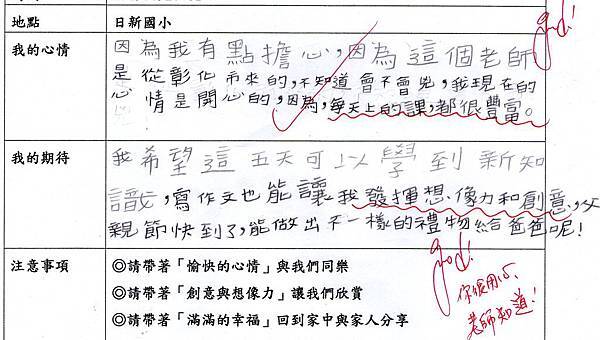 地點 日新國小
good!
我的心情 因為我有點擔心,因為這個老師
是從彰化市來的,不知道會不會兇,我現在的
心情是開心的,因為,每天上的課,都很豐富。
我的期待 我希望這五天可以學到新知
識,寫作文也能讓我發揮想像力和創意,父
親節快到了,能做出不一樣的禮物給爸爸呢!
good!
你很用心、
老師知道!
注意事項 ◎請帶著「愉快的心情」與我們同樂
◎請帶著「創意與想像力」讓我們欣賞
◎請帶著「滿滿的幸福」回到家中與家人分享